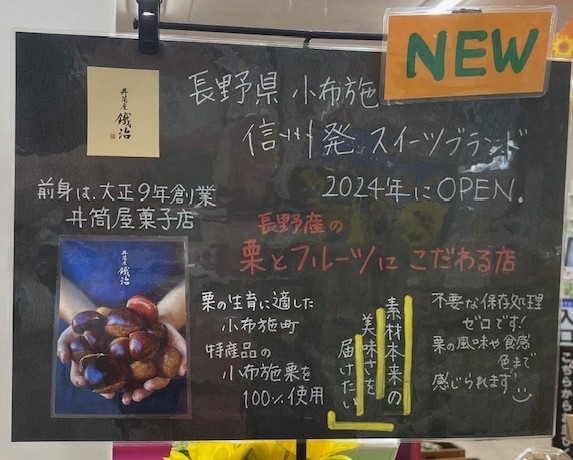 NEW
井筒屋
鐵治
長野県 小布施に
信州発 スイーツブランド
2024年にOPEN.
前身は、大正9年創業
井筒屋菓子店
長野産の
栗とフルーツに こだわる店
井筒屋
鐵治
栗の生育に適した
小布施町
特産品の
小布施栗を
100%使用
素材本来の
美味さを
届けたい
不要な保存処理
ゼロです!
栗の風味や食感
色まで
感じられます!
入口 こちらから